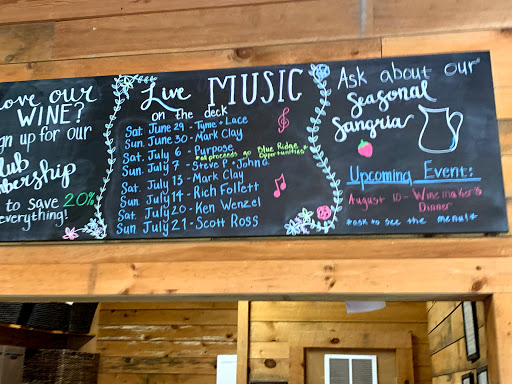 ove our
WINE?
gn up for our
lub
mbership
to save 20%
everything!
Live MUSIC
on the deck
Sat June 29 - Tyme * Lace
Sun. June 30 - Mark Clay
Sat. July 6 - Purpose
*all proceeds go Blue Ridge Opportunities*
Sun. July 7 - Steve P. * John O.
Sat. July 13 - Mark Clay
Sun. July 14 - Rich Follett
Sat. July 20 - Ken Wenzel
Sun. July 21 - Scott Ross
Ask about our
Seasonal
Sangria
Upcoming Event:
August 10 - Winemaker's
Dinner
*ask to see the menu!*